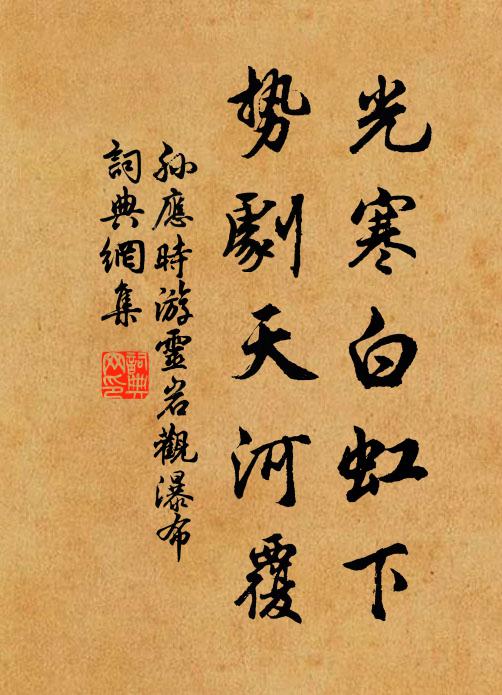 光寒白虹下
势劇天河覆
孙應時游靈岩觀瀑布
詞典網集
詞典
网印